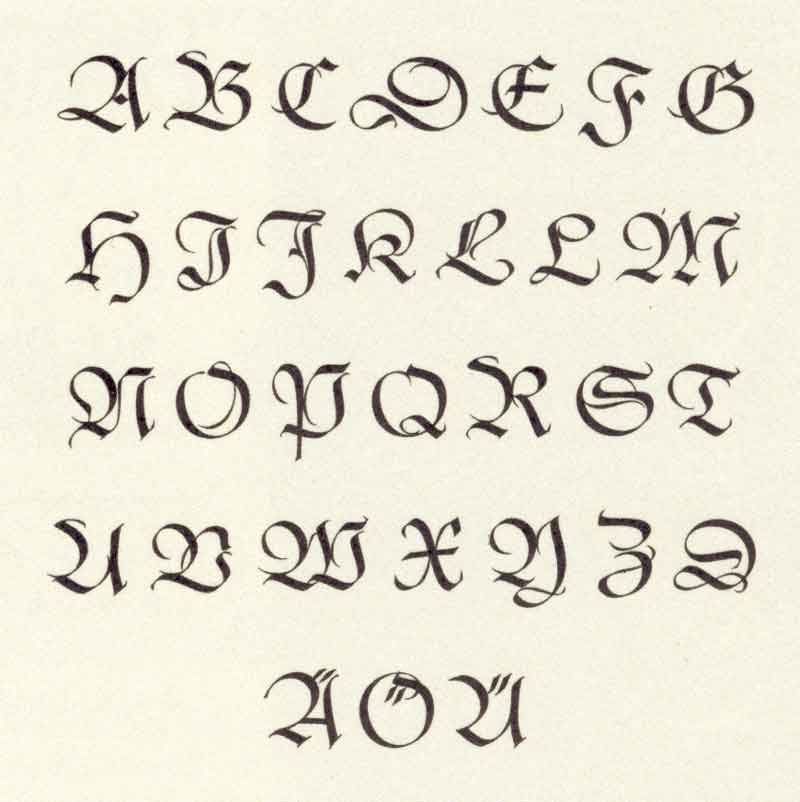 A B C D E F G
H I J K L L M
N O P Q R S T
U V W X Y Z D
Ä Ö Ü